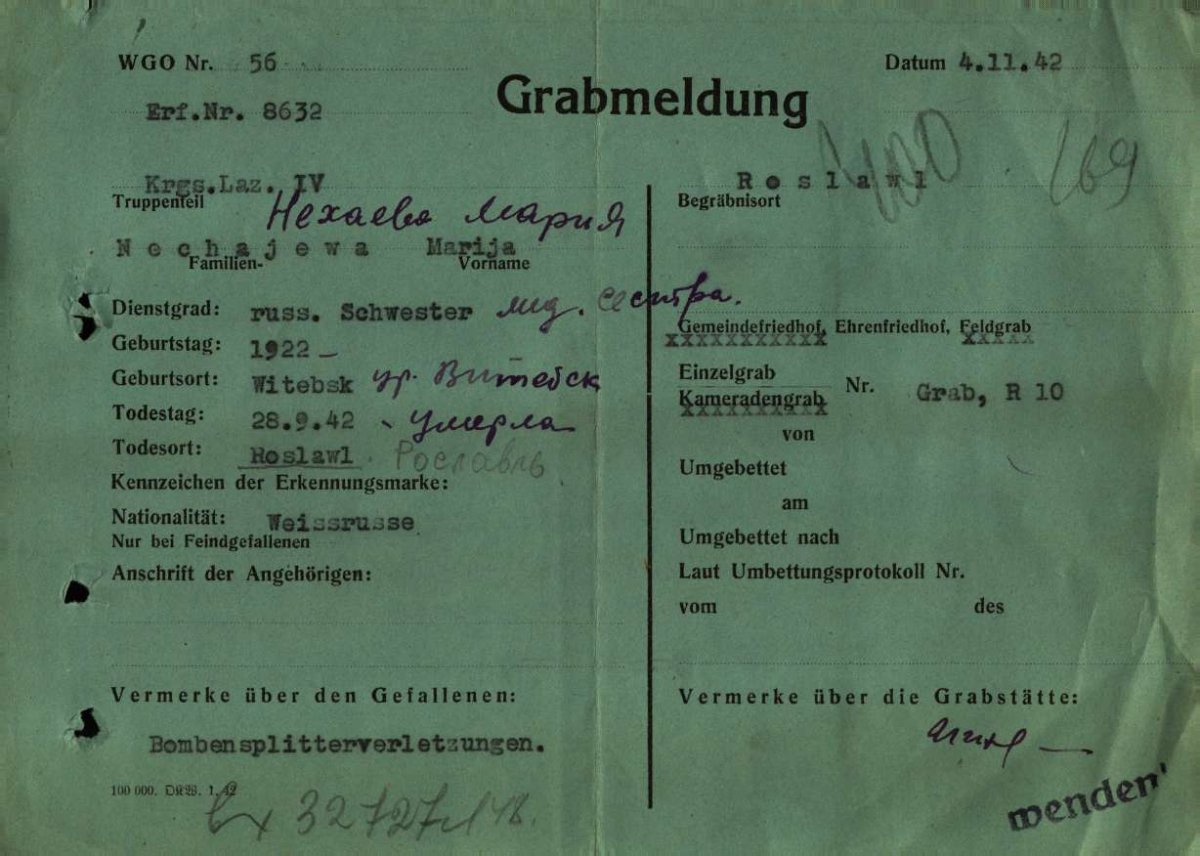 WGO Nr. 56
Datum 4.11.42
Erf.Nr. 8632
Grabmeldung
400
169
Krgs.Laz. IV
Truppenteil
Нехаева Мария
Nechajewa Marija
Familien- Vorname
Dienstgrad: russ. Schwester мед. сестра.
Geburtstag: 1922 –
Geburtsort: Witebsk гр. Витебск
Todestag: 28.9.42 - умерла
Todesort: Roslawl Рославль
Kennzeichen der Erkennungsmarke:
Nationalität: Weissrusse
Nur bei Feindgefallenen
Anschrift der Angehörigen:
Vermerke über den Gefallenen:
Bombensplitterverletzungen.
100 000. 1. 42
вх 32727 48.
Roslawl
Begräbnisort
Gemeindefriedhof, Ehrenfriedhof, Feldgrab
Einzelgrab
Kameradengrab
Nr. Grab, R 10
von
Umgebettet
am
Umgebettet nach
Laut Umbettungsprotokoll Nr.
vom des
Vermerke über die Grabstätte:
wenden!